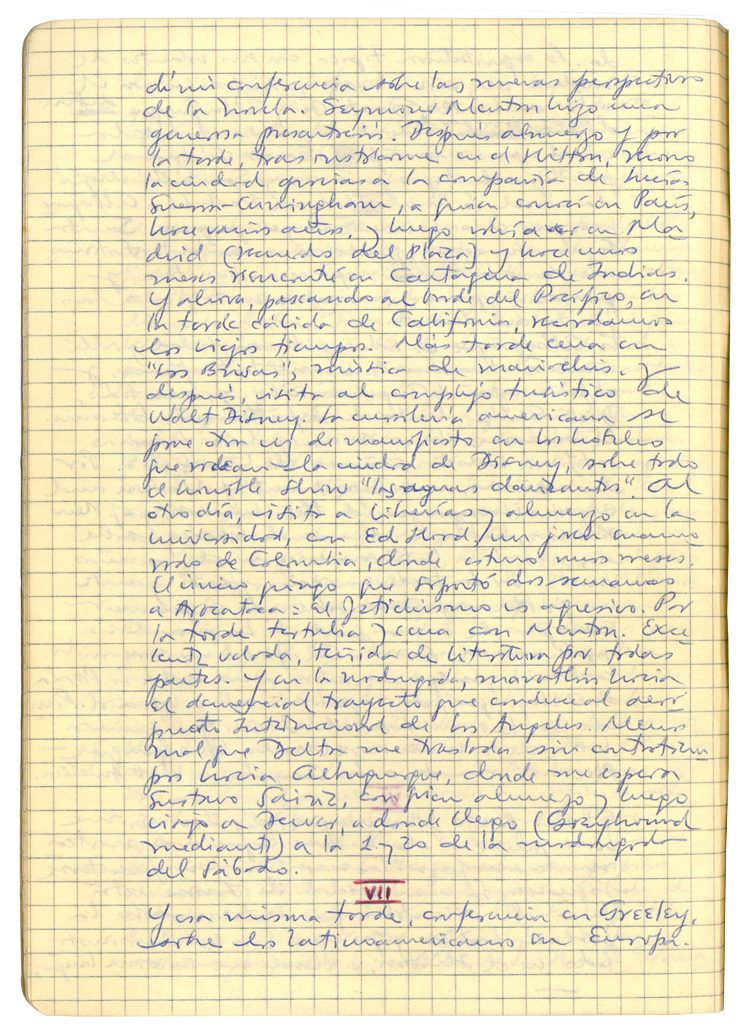 di mi conferencia sobre las nuevas perspectivas
de la novela. Seymour Menton hizo una
generosa presentación. Después almuerzo y por
la tarde, tras instalarme en el Hilton, recorro
la ciudad gracias a la compañía de Lucía
Guerra-Cunningham, a quien conocí en París,
hace varios años, y luego volví a ver en Ma
drid (recuerdo del Plaza) y hace unos
meses reencontré en Cartagena de Indias.
Y ahora, paseando al borde del Pacífico, en
la tarde cálida de California, recordamos
los viejos tiempos. Más tarde cena en
"Las Brisas", música de mariachis. Y
después, visita al complejo turístico de
Walt Disney. La americana se
pone otra vez de manifiesto en los hoteles
que rodean la ciudad de Disney, sobre todo
el horrible show "las aguas danzantes". Al
otro día, visita a librerías y almuerzo en la
universidad, con Ed Hood, un joven enamo
rado de Colombia, donde estuvo unos meses.
El único gringo que soportó dos semanas
a Aracataca: el fetichismo es agresivo. Por
la tarde tertulia y cena con Menton. Exce
lente velada, teñida de literatura por todas
partes. Y en la madrugada, maratón hacia
el demencial trayecto que conduce al aero
puerto Internacional de Los Angeles. Menos
mal que Delta me traslada sin contratiem
pos hacia Albuquerque, donde me espera
Gustavo Sainz, con quien almuerzo y luego
viajo a Denver, a donde llego (Greyhound
mediante) a la 1 y 20 de la madrugada
del sábado.
VII
Y esa misma tarde, conferencia en Greeley,
sobre los latinoamericanos en Europa.